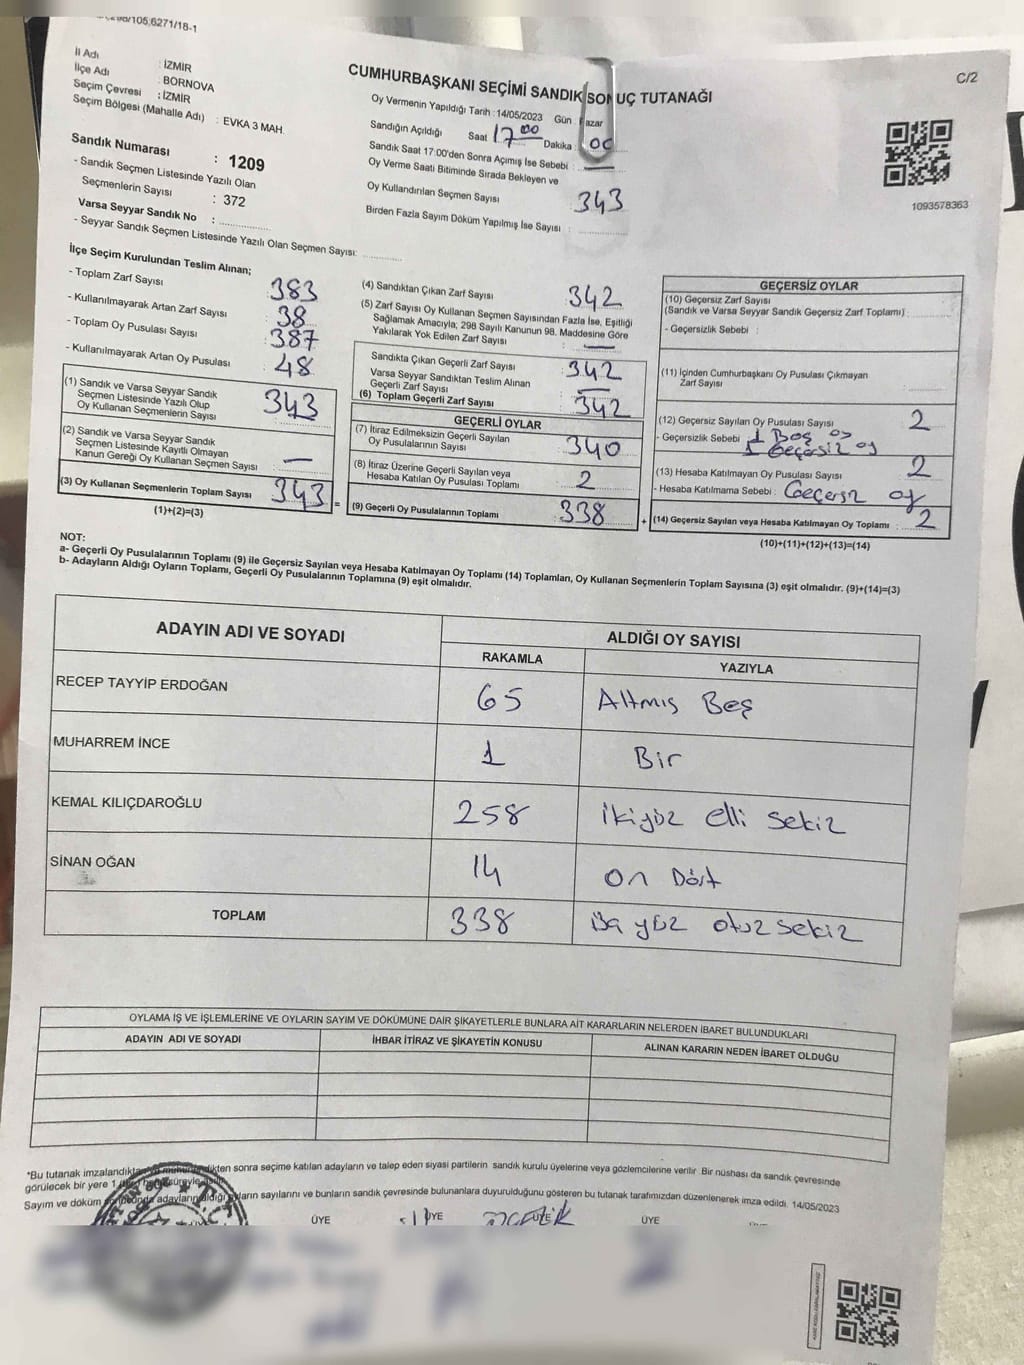 İl Adı : İZMİR
İlçe Adı : BORNOVA
Seçim Çevresi : İZMİR
Seçim Bölgesi (Mahalle Adı) : EVKA 3 MAH.
Sandık Numarası : 1209
- Sandık Seçmen Listesinde Yazılı Olan
Seçmenlerin Sayısı : 372
Varsa Seyyar Sandık No :
- Seyyar Sandık Seçmen Listesinde Yazılı Olan Seçmen Sayısı:
CUMHURBAŞKANI SEÇİMİ SANDIK SONUÇ TUTANAĞI
C/2
Oy Vermenin Yapıldığı Tarih : 14/05/2023 Gün : Pazar
Sandığın Açıldığı Saat 17:00 Dakika : 00
Sandık Saat 17:00'den Sonra Açımış İse Sebebi : —
Oy Verme Saati Bitiminde Sırada Bekleyen ve
Oy Kullandırılan Seçmen Sayısı : 343
Birden Fazla Sayım Döküm Yapılmış İse Sayısı :
1093578363
İlçe Seçim Kurulundan Teslim Alınan;
- Toplam Zarf Sayısı : 383
- Kullanılmayarak Artan Zarf Sayısı : 38
- Toplam Oy Pusulası Sayısı : 387
- Kullanılmayarak Artan Oy Pusulası : 48
(1) Sandık ve Varsa Seyyar Sandık
Seçmen Listesinde Yazılı Olup
Oy Kullanan Seçmenlerin Sayısı : 343
(2) Sandık ve Varsa Seyyar Sandık
Seçmen Listesinde Kayıtlı Olmayan
Kanun Gereği Oy Kullanan Seçmen Sayısı : —
(3) Oy Kullanan Seçmenlerin Toplam Sayısı : 343
(1)+(2)=(3)
(4) Sandıktan Çıkan Zarf Sayısı : 342
(5) Zarf Sayısı Oy Kullanan Seçmen Sayısından Fazla İse, Eşitliği
Sağlamak Amacıyla; 298 Sayılı Kanunun 98. Maddesine Göre
Yakılarak Yok Edilen Zarf Sayısı : —
Sandıkta Çıkan Geçerli Zarf Sayısı : 342
Varsa Seyyar Sandıktan Teslim Alınan
Geçerli Zarf Sayısı : —
(6) Toplam Geçerli Zarf Sayısı : 342
GEÇERLİ OYLAR
(7) İtiraz Edilmeksizin Geçerli Sayılan
Oy Pusulalarının Sayısı : 340
(8) İtiraz Üzerine Geçerli Sayılan veya
Hesaba Katılan Oy Pusulası Toplamı : 2
(9) Geçerli Oy Pusulalarının Toplamı : 338
GEÇERSİZ OYLAR
(10) Geçersiz Zarf Sayısı
(Sandık ve Varsa Seyyar Sandık Geçersiz Zarf Toplamı) :
- Geçersizlik Sebebi :
(11) İçinden Cumhurbaşkanı Oy Pusulası Çıkmayan
Zarf Sayısı :
(12) Geçersiz Sayılan Oy Pusulası Sayısı : 2
- Geçersizlik Sebebi : 1 Boş oy
1 Geçersiz oy
(13) Hesaba Katılmayan Oy Pusulası Sayısı : 2
- Hesaba Katılmama Sebebi : Geçersiz oy
(14) Geçersiz Sayılan veya Hesaba Katılmayan Oy Toplamı : 2
(10)+(11)+(12)+(13)=(14)
NOT:
a- Geçerli Oy Pusulalarının Toplamı (9) ile Geçersiz Sayılan veya Hesaba Katılmayan Oy Toplamı (14) Toplamları, Oy Kullanan Seçmenlerin Toplam Sayısına (3) eşit olmalıdır. (9)+(14)=(3)
b- Adayların Aldığı Oyların Toplamı, Geçerli Oy Pusulalarının Toplamına (9) eşit olmalıdır.
ADAYIN ADI VE SOYADI ALDIĞI OY SAYISI
RAKAMLA YAZIYLA
RECEP TAYYİP ERDOĞAN 65 Altmış Beş
MUHARREM İNCE 1 Bir
KEMAL KILIÇDAROĞLU 258 ikiyüz elli sekiz
SİNAN OĞAN 14 on Dört
TOPLAM 338 yüz otuz sekiz
OYLAMA İŞ VE İŞLEMLERİNE VE OYLARIN SAYIM VE DÖKÜMÜNE DAİR ŞİKAYETLERLE BUNLARA AİT KARARLARIN NELERDEN İBARET BULUNDUKLARI
ADAYIN ADI VE SOYADI İHBAR İTİRAZ VE ŞİKAYETİN KONUSU ALINAN KARARIN NEDEN İBARET OLDUĞU
*Bu tutanak sonra seçime katılan adayların ve talep eden siyasi partilerin sandık kurulu üyelerine veya gözlemcilerine verilir. Bir nüshası da sandık çevresinde
görülecek bir yere
Sayım ve döküm sayılarını ve bunların sandık çevresinde bulunanlara duyurulduğunu gösteren bu tutanak tarafımızdan düzenlenerek imza edildi. 14/05/2023
ÜYE ÜYE ÜYE ÜYE